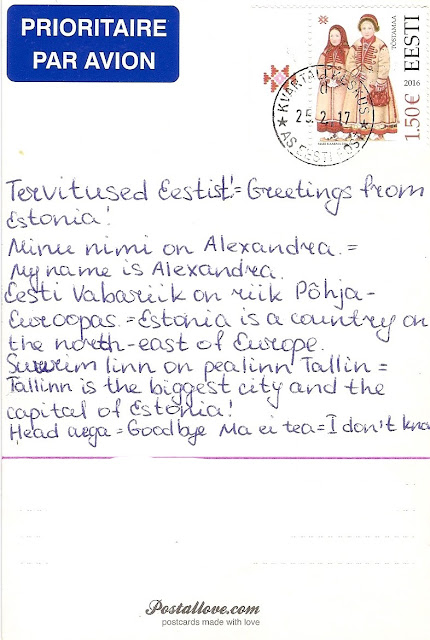 PRIORITAIRE
PAR AVION
TÕSTAMAA
EESTI
2016
1.50€
KVARTALI KESKUS
25.2.17
AS EESTI POST
Tervitused Eestist! = Greetings from
Estonia!
Minu nimi on Alexandra. =
My name is Alexandra.
Eesti Vabariik on riik Põhja-
Euroopas. = Estonia is a country on
the north-east of Europe.
Suurim linn on pealinn Tallin =
Tallinn is the biggest city and the
capital of Estonia!
Head aega = Goodbye Ma ei tea = I don't kno
Postallove.com
postcards made with love